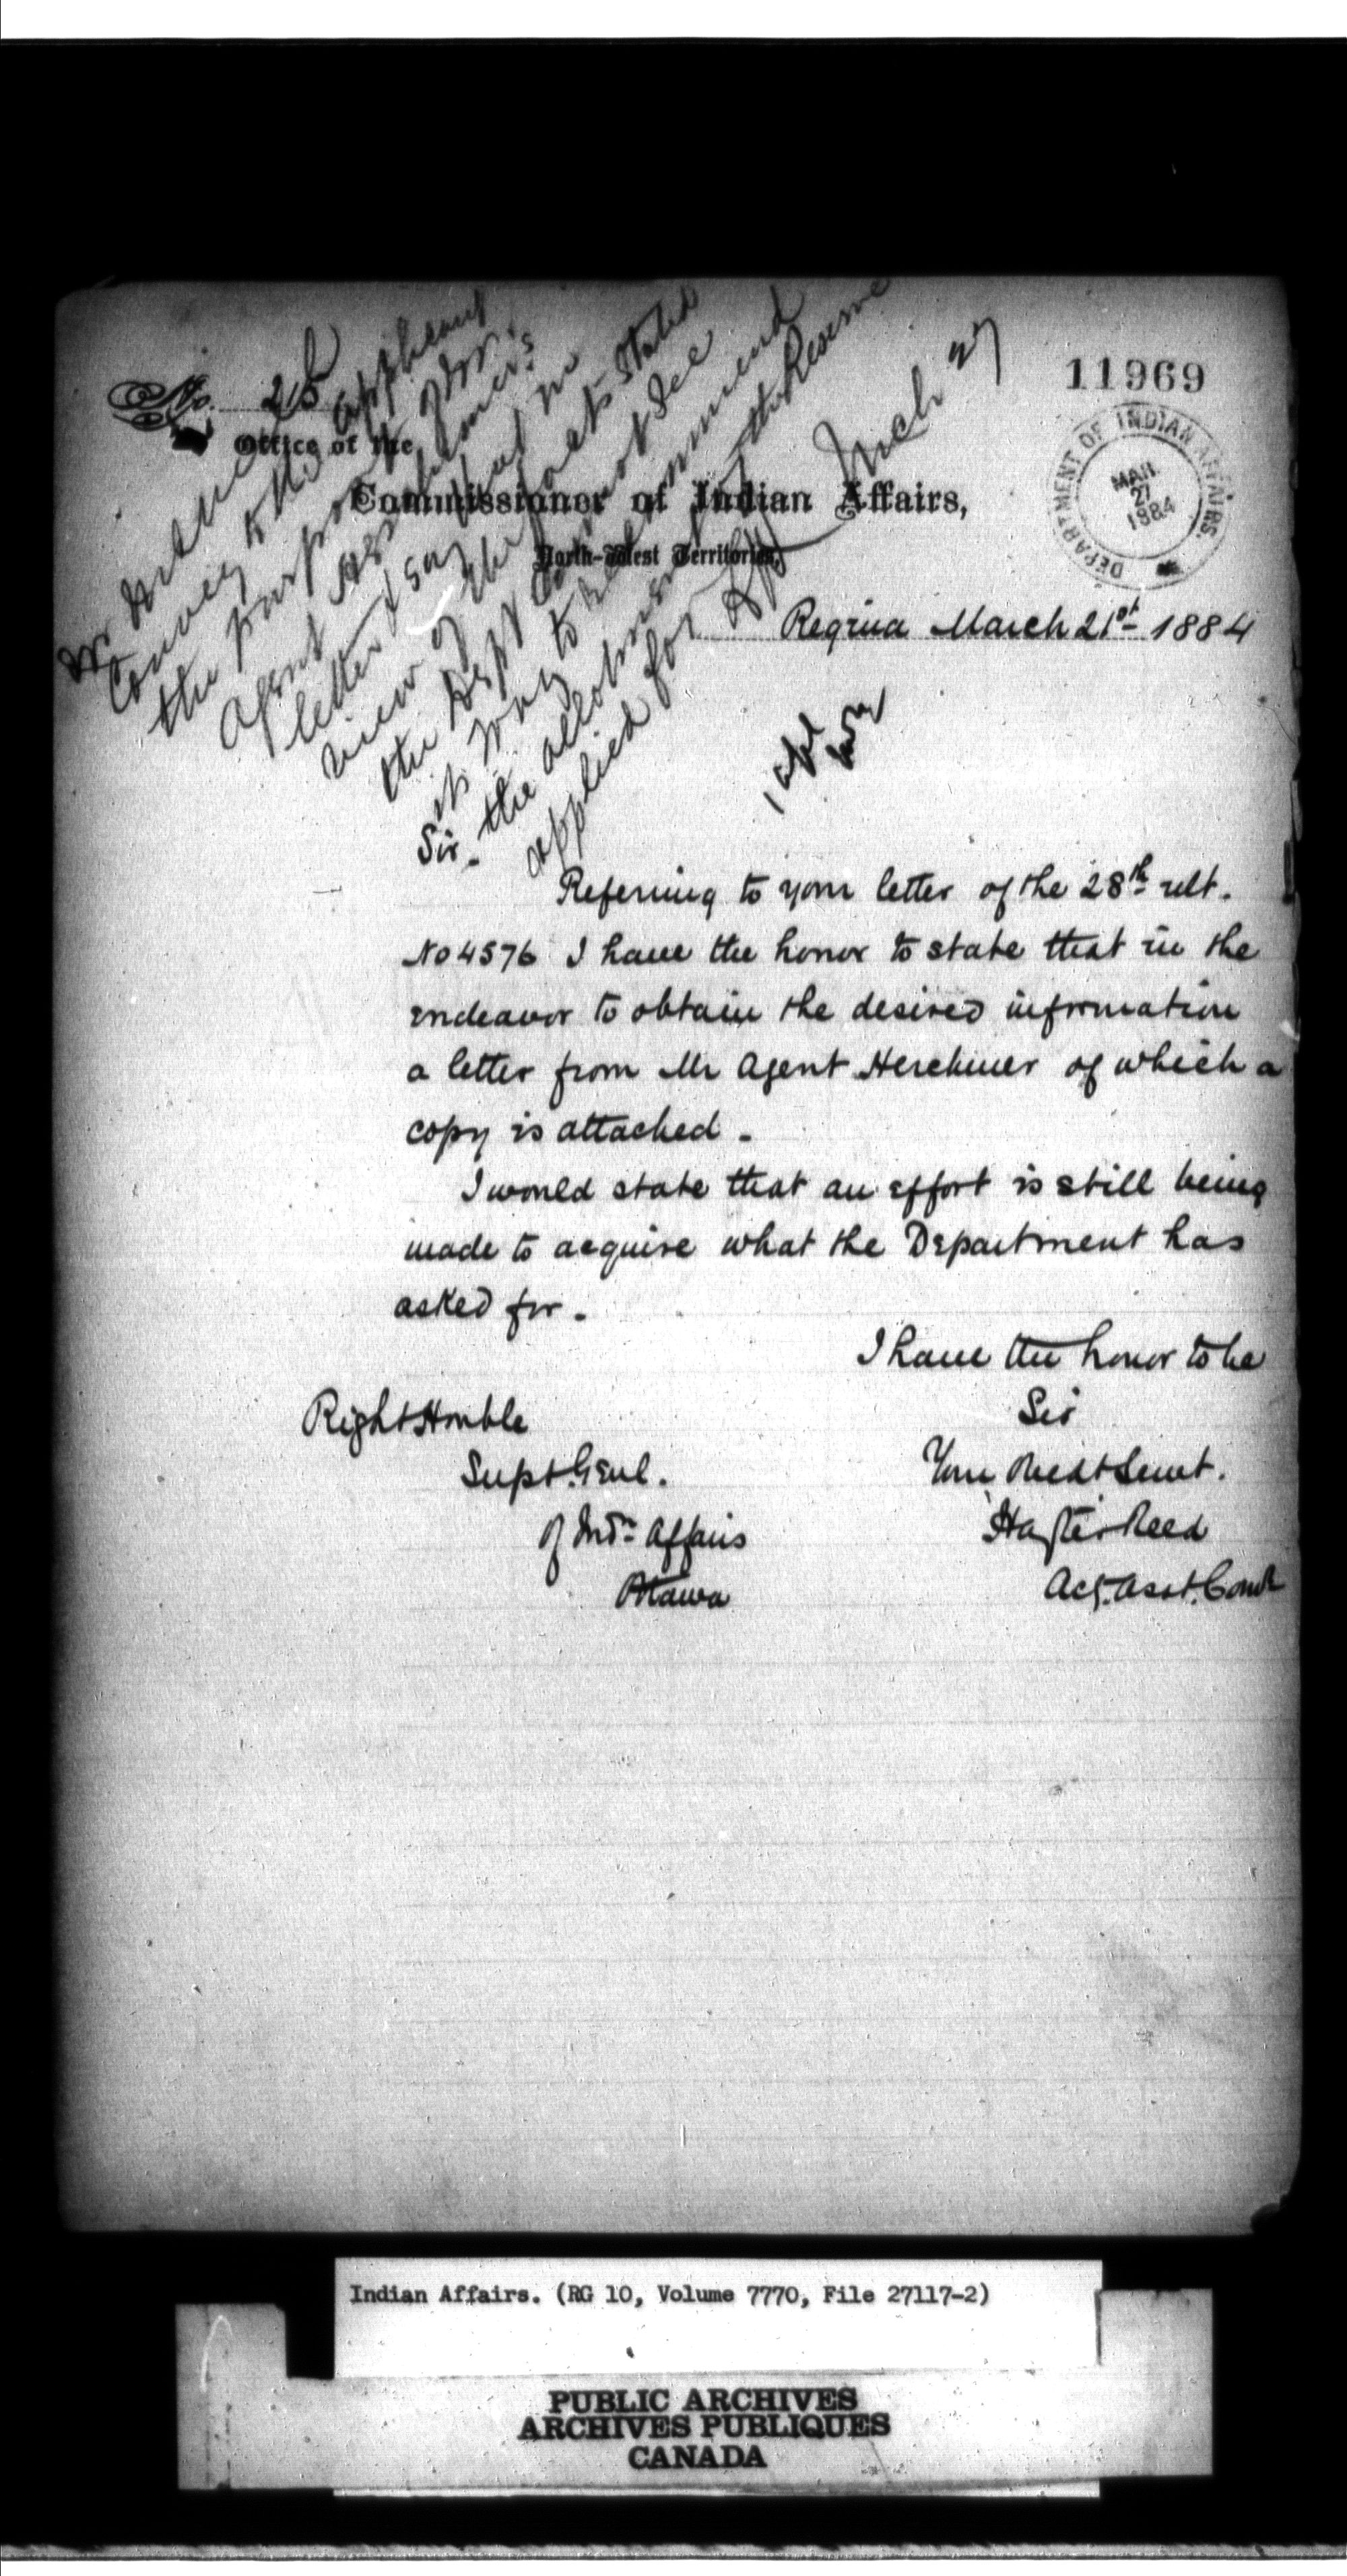 No. 25
11969
Office of the
Commissioner of Indian Affairs,
North-West Territories,
DEPARTMENT OF INDIAN AFFAIRS.
MAR
27
1884
Regina March 21st 1884
Mr
Convey to the applicant
the purport of
Agent Herchmer's
letter & say that in
view of the facts stated
the Dept cannot see
its way to recommend
the allotment of the Reserve
applied for
Mch 27
Sir -
Referring to your letter of the 28th ult.
No 4576 I have the honor to state that in the
endeavor to obtain the desired information
a letter from Mr Agent Herchmer of which a
copy is attached -
I would state that an effort is still being
made to acquire what the Department has
asked for -
I have the honor to be
Sir
Your Obedt Servt.
Hayter Reed
Actg. Asst. Comr
Right Honble
Supt. Genl.
Of Indn Affairs
Ottawa
Indian Affairs. (RG 10, Volume 7770, File 27117-2)
PUBLIC ARCHIVES
ARCHIVES PUBLIQUES
CANADA